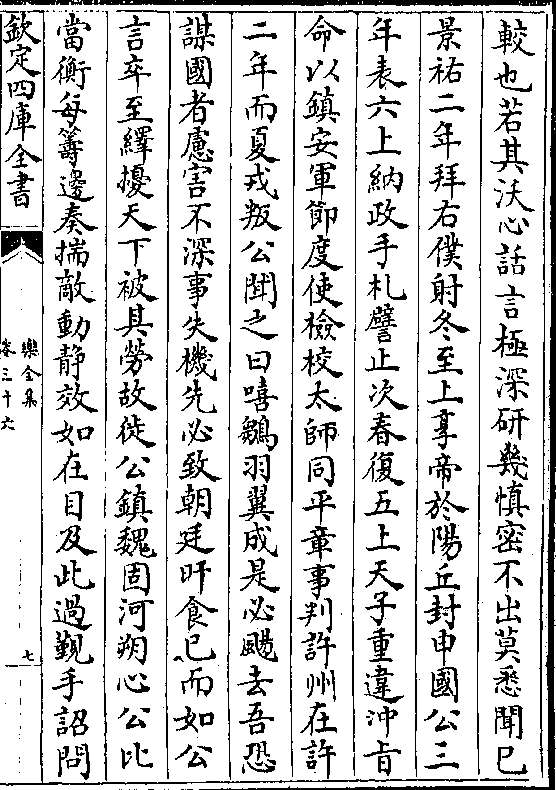 較也若其沃心話言極深研幾慎密不出莫悉聞已
景祐二年拜右僕射冬至上享帝於陽丘封申國公三
年表六上納政手札譬止次春復五上天子重違沖旨
命以鎮安軍節度使檢校太師同平章事判許州在許
二年而夏戎叛公聞之曰嘻鷂羽翼成是必颺去吾恐
謀國者慮害不深事失機先必致朝廷旰食已而如公
言卒至繹擾天下被其勞故徙公鎮魏固河朔心公比
當衡每籌邊奏揣敵動靜效如在目及此過覲手詔問
欽定四庫全書
樂全集
卷三十六
七